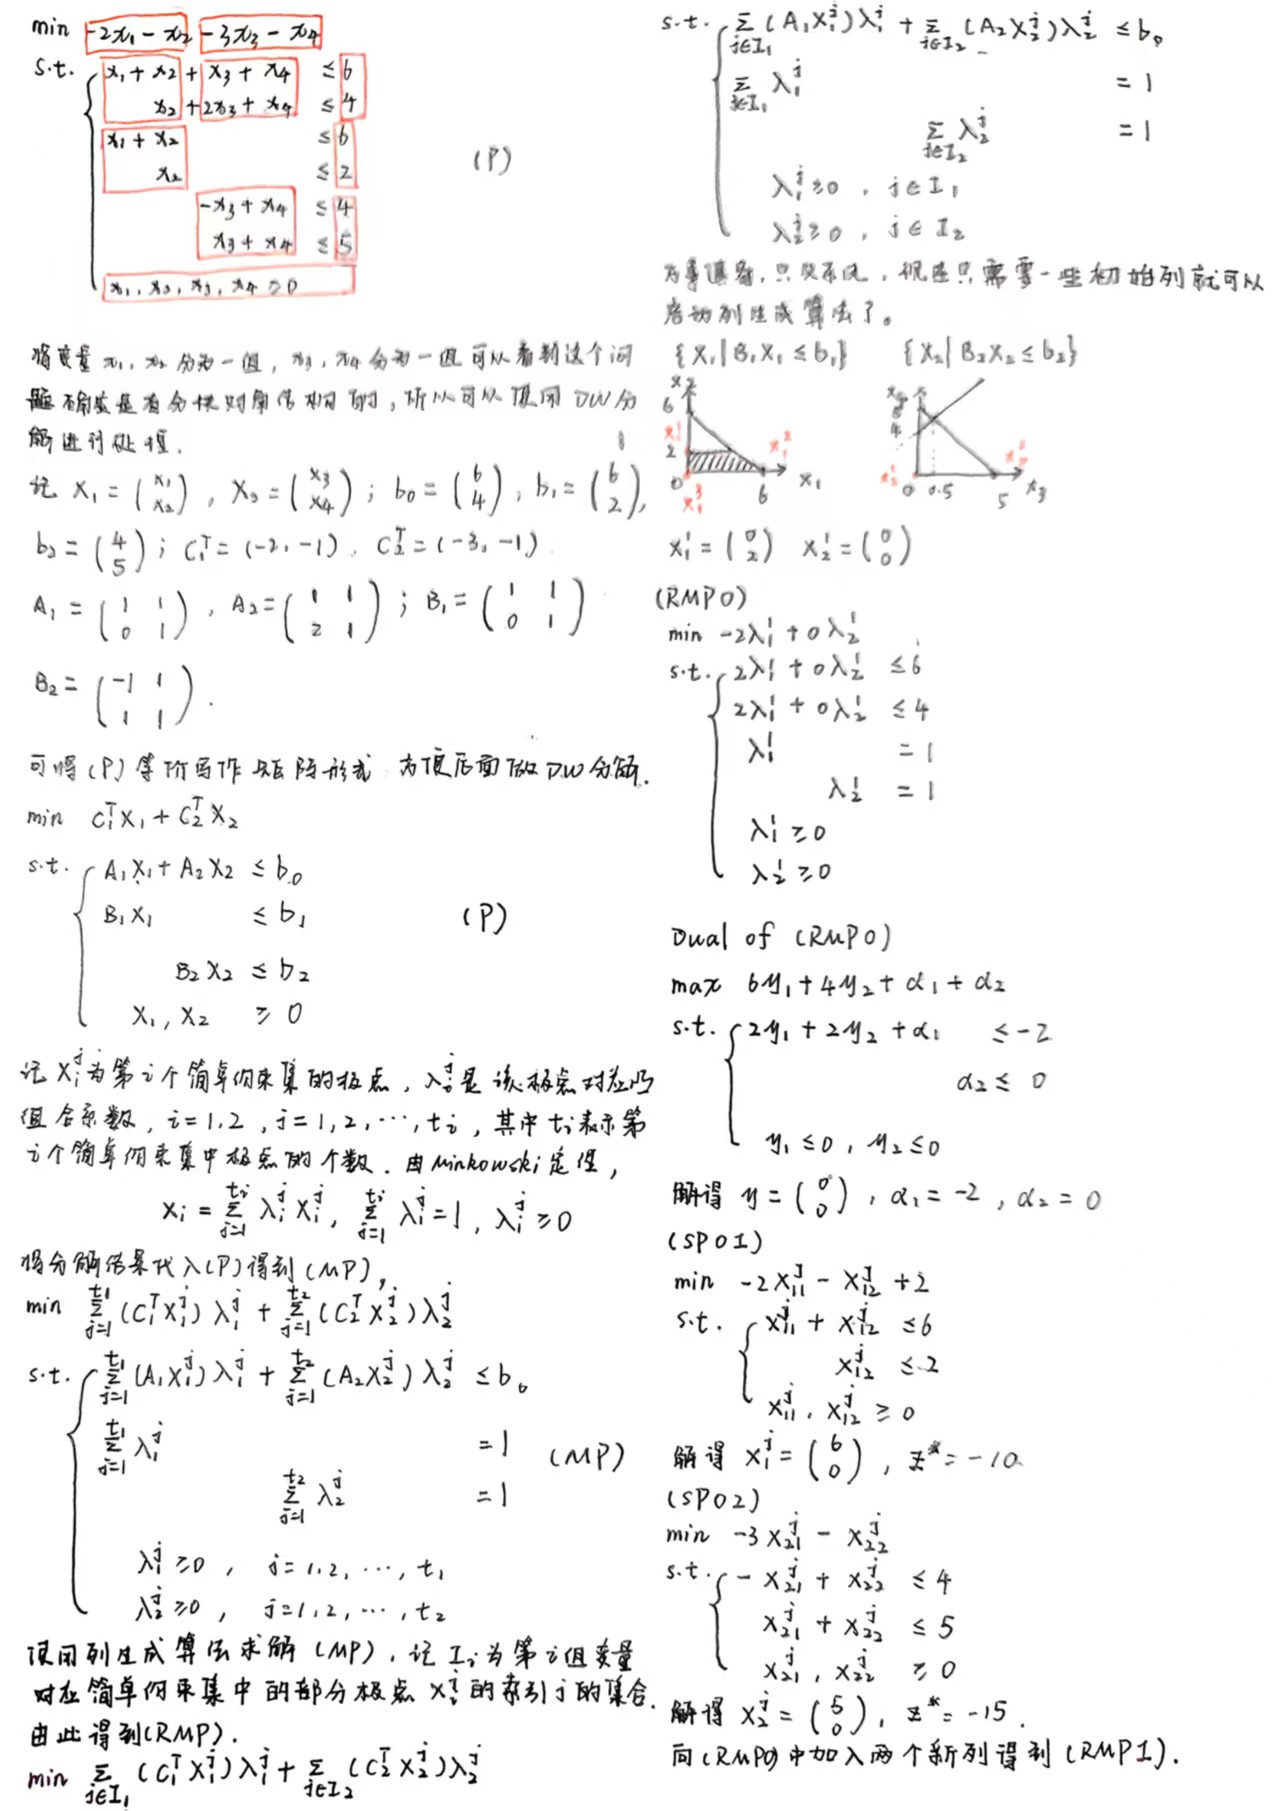 min -2x₁ - x₂ -3x₃ - x₄
s.t. x₁ + x₂ + x₃ + x₄ ≤ 6
x₂ + 2x₃ + x₄ ≤ 4
x₁ + x₂ ≤ 6
x₂ ≤ 2
(P)
-x₃ + x₄ ≤ 4
x₃ + x₄ ≤ 5
x₁, x₂, x₃, x₄ ≥ 0
将变量 x₁, x₂ 分为一组, x₃, x₄ 分为一组 可以看到这个问
题确实是有分块对角结构的, 所以可以使用 DW分
解进行处理.
记 X₁ = (x₁ x₂), X₂ = (x₃ x₄); b₀ = (6 4), b₁ = (6 2),
b₂ = (4 5); C₁ᵀ = (-2, -1), C₂ᵀ = (-3, -1).
A₁ = (1 1 0 1), A₂ = (1 1 2 1); B₁ = (1 1 0 1)
B₂ = (-1 1 1 1).
可将(P)等价写作矩阵形式 方便后面做DW分解.
min C₁ᵀX₁ + C₂ᵀX₂
s.t. A₁X₁ + A₂X₂ ≤ b₀
B₁X₁ ≤ b₁ (P)
B₂X₂ ≤ b₂
X₁, X₂ ≥ 0
记 Xᵢʲ为第i个简单约束集的极点, λᵢʲ是该极点对应的
组合系数, i=1,2, j=1,2,⋯,tᵢ, 其中tᵢ表示第
i个简单约束集中极点的个数. 由Minkowski定理,
Xᵢ = Σⱼ₌₁^tᵢ λᵢʲXᵢʲ, Σⱼ₌₁^tᵢ λᵢʲ = 1, λᵢʲ ≥ 0
将分解结果代入(P)得到(MP),
min Σⱼ₌₁^t₁ (C₁ᵀX₁ʲ)λ₁ʲ + Σⱼ₌₁^t₂ (C₂ᵀX₂ʲ)λ₂ʲ
s.t. Σⱼ₌₁^t₁ (A₁X₁ʲ)λ₁ʲ + Σⱼ₌₁^t₂ (A₂X₂ʲ)λ₂ʲ ≤ b₀
Σⱼ₌₁^t₁ λ₁ʲ = 1 (MP)
Σⱼ₌₁^t₂ λ₂ʲ = 1
λ₁ʲ ≥ 0, j=1,2,⋯,t₁
λ₂ʲ ≥ 0, j=1,2,⋯,t₂
使用列生成算法求解(MP), 记 Iᵢ为第i组变量
对应简单约束集中的部分极点 Xᵢʲ的索引j的集合.
由此得到(RMP).
min Σ_{j∈I₁} (C₁ᵀX₁ʲ)λ₁ʲ + Σ_{j∈I₂} (C₂ᵀX₂ʲ)λ₂ʲ
s.t. Σ_{j∈I₁} (A₁X₁ʲ)λ₁ʲ + Σ_{j∈I₂} (A₂X₂ʲ)λ₂ʲ ≤ b₀
Σ_{j∈I₁} λ₁ʲ = 1
Σ_{j∈I₂} λ₂ʲ = 1
λ₁ʲ ≥ 0, j∈I₁
λ₂ʲ ≥ 0, j∈I₂
, 现在只需要一些初始列就可以
启动列生成算法了。
{X₁|B₁X₁ ≤ b₁} {X₂|B₂X₂ ≤ b₂}
x₂ 6 X₁¹ 2 0 X₁³ 6 X₁² x₁
x₄ 5 4 X₂¹ 0 0.5 5 X₂² x₃
X₁¹ = (0 2) X₂¹ = (0 0)
(RMP0)
min -2λ₁¹ + 0λ₂¹
s.t. 2λ₁¹ + 0λ₂¹ ≤ 6
2λ₁¹ + 0λ₂¹ ≤ 4
λ₁¹ = 1
λ₂¹ = 1
λ₁¹ ≥ 0
λ₂¹ ≥ 0
Dual of (RMP0)
max 6y₁ + 4y₂ + α₁ + α₂
s.t. 2y₁ + 2y₂ + α₁ ≤ -2
α₂ ≤ 0
y₁ ≤ 0, y₂ ≤ 0
解得 y = (0 0), α₁ = -2, α₂ = 0
(SP01)
min -2X₁₁ʲ - X₁₂ʲ + 2
s.t. X₁₁ʲ + X₁₂ʲ ≤ 6
X₁₂ʲ ≤ 2
X₁₁ʲ, X₁₂ʲ ≥ 0
解得 X₁ʲ = (6 0), z* = -10
(SP02)
min -3X₂₁ʲ - X₂₂ʲ
s.t. -X₂₁ʲ + X₂₂ʲ ≤ 4
X₂₁ʲ + X₂₂ʲ ≤ 5
X₂₁ʲ, X₂₂ʲ ≥ 0
解得 X₂ʲ = (5 0), z* = -15.
向(RMP0)中加入两个新列得到(RMP1).